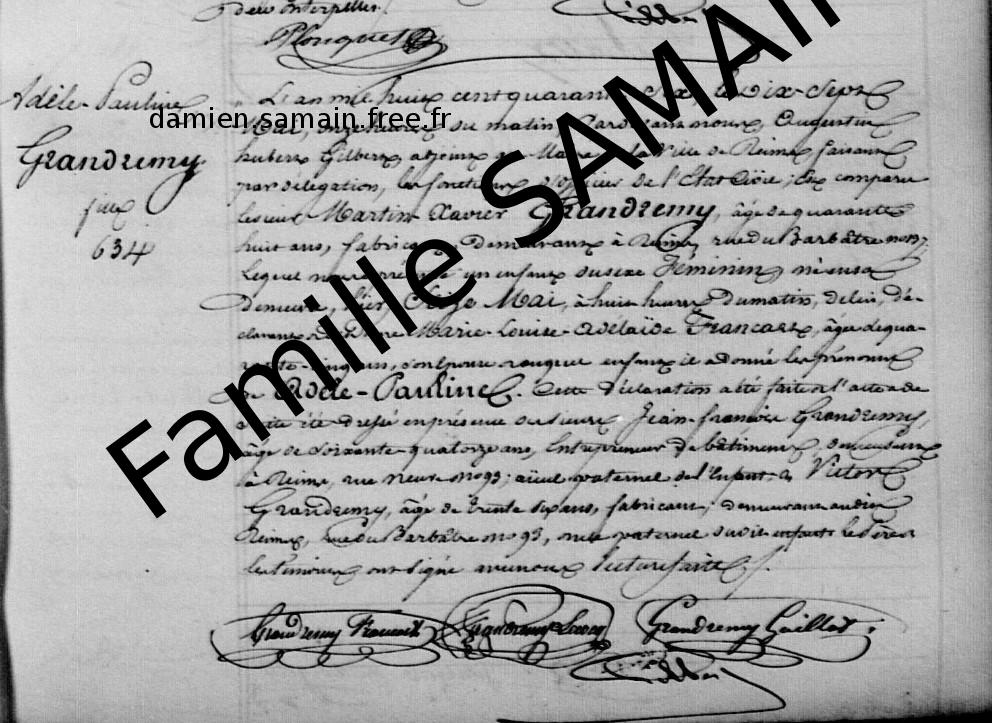 Plonquet
Adèle-Pauline
Grandremy
634
damien.samain.free.fr
Famille SAMAIN
L'an mil huit cent quarante six, le Dix-Sept
Mai, onze heures du matin, Pardevant nous, Augustin
hubert Gilbert, adjoint au Maire de la Ville de Reims, faisant
par délégation, les fonctions d'officier de l'Etat Civil; Est comparu
le sieur Martin Xavier Grandremy, âgé de quarante
huit ans, fabricant, Demeurant à Reims, rue du Barbâtre
Lequel nous a présenté un enfant du sexe Féminin, né en sa
Demeure, hier, Mai, à huit heures Du matin, de lui, dé-
clarant, et de Marie-Louise-Adélaïde Francart, âgée de qua-
rante-cinq ans, enfant il a donné les prénoms
de Adèle-Pauline. Cette Déclaration a été faite et l'acte a de
suite été dressé en présence des sieurs Jean-françois Grandremy,
âgé de soixante-quatorze ans, Entrepreneur de bâtiment, demeurant
à Reims, rue Neuve no 93; aïeul paternel de l'Enfant. & Victor
Grandremy, âgé de trente six ans, fabricant; demeurant audit
Reims, rue du Barbâtre no 93, oncle paternel dudit enfant. Le Père et
les témoins ont signé avec nous lecture faite.
Grandremy Francart Grandremy Grandremy Gaillot
Gilbert